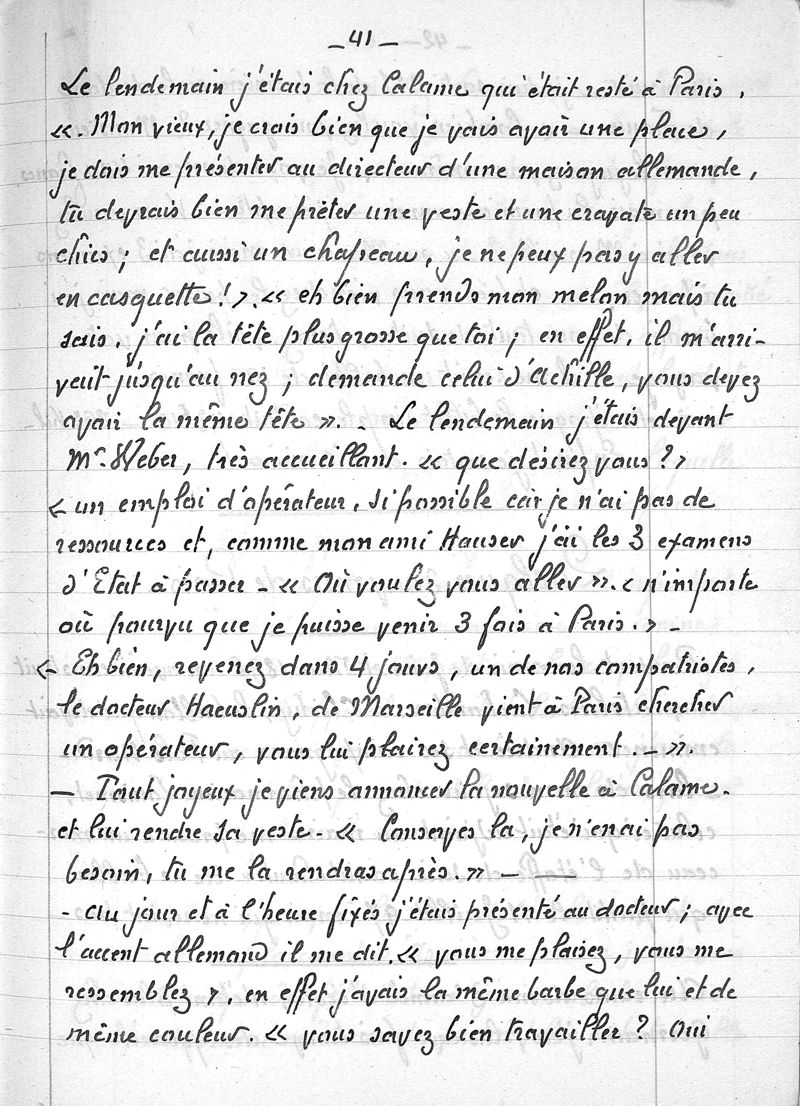 _ 41 _
Le lendemain j'étais chez Calame qui était resté à Paris.
«. Mon vieux, je crois bien que je vais avoir une place,
je dois me présenter au directeur d'une maison allemande,
tu devrais bien me prêter une veste et une cravate un peu
chics ; et aussi un chapeau, je ne peux pas y aller
en casquette ! ». « eh bien prends mon melon mais tu
sais, j'ai la tête plus grosse que toi ; en effet, il m'arri-
vait jusqu'au nez ; demande celui d'Achille, vous devez
avoir la même tête ». - Le lendemain j'étais devant
Mr. Weber, très accueillant. « que désirez vous ? »
« un emploi d'opérateur, si possible car je n'ai pas de
ressources et, comme mon ami Hauser j'ai les 3 examens
d'Etat à passer - « Où voulez vous aller ». « n'importe
où pourvu que je puisse venir 3 fois à Paris. » -
« Eh bien, revenez dans 4 jours, un de nos compatriotes,
le docteur Haeuslin, de Marseille vient à Paris chercher
un opérateur, vous lui plairez certainement. - ».
— Tout joyeux je viens annoncer la nouvelle à Calame.
et lui rendre sa veste - « Conserves la, je n'en ai pas
besoin, tu me la rendras après. » — —
- Au jour et à l'heure fixés j'étais présenté au docteur ; avec
l'accent allemand il me dit. « vous me plaisez, vous me
ressemblez », en effet j'avais la même barbe que lui et de
même couleur. « vous savez bien travailler ? Oui